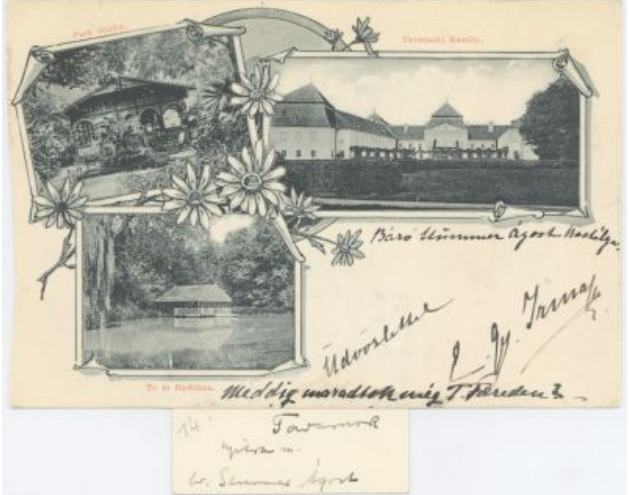 Park részlet.
Tavarnoki Kastély.
Báró Stummer Ágost kastélya
Üdvözlettel
Irma
Tó és fürdőház.
Meddig maradtok még T. Füreden?
14
Tavarnok
Nyitra m.
br. Stummer Ágost